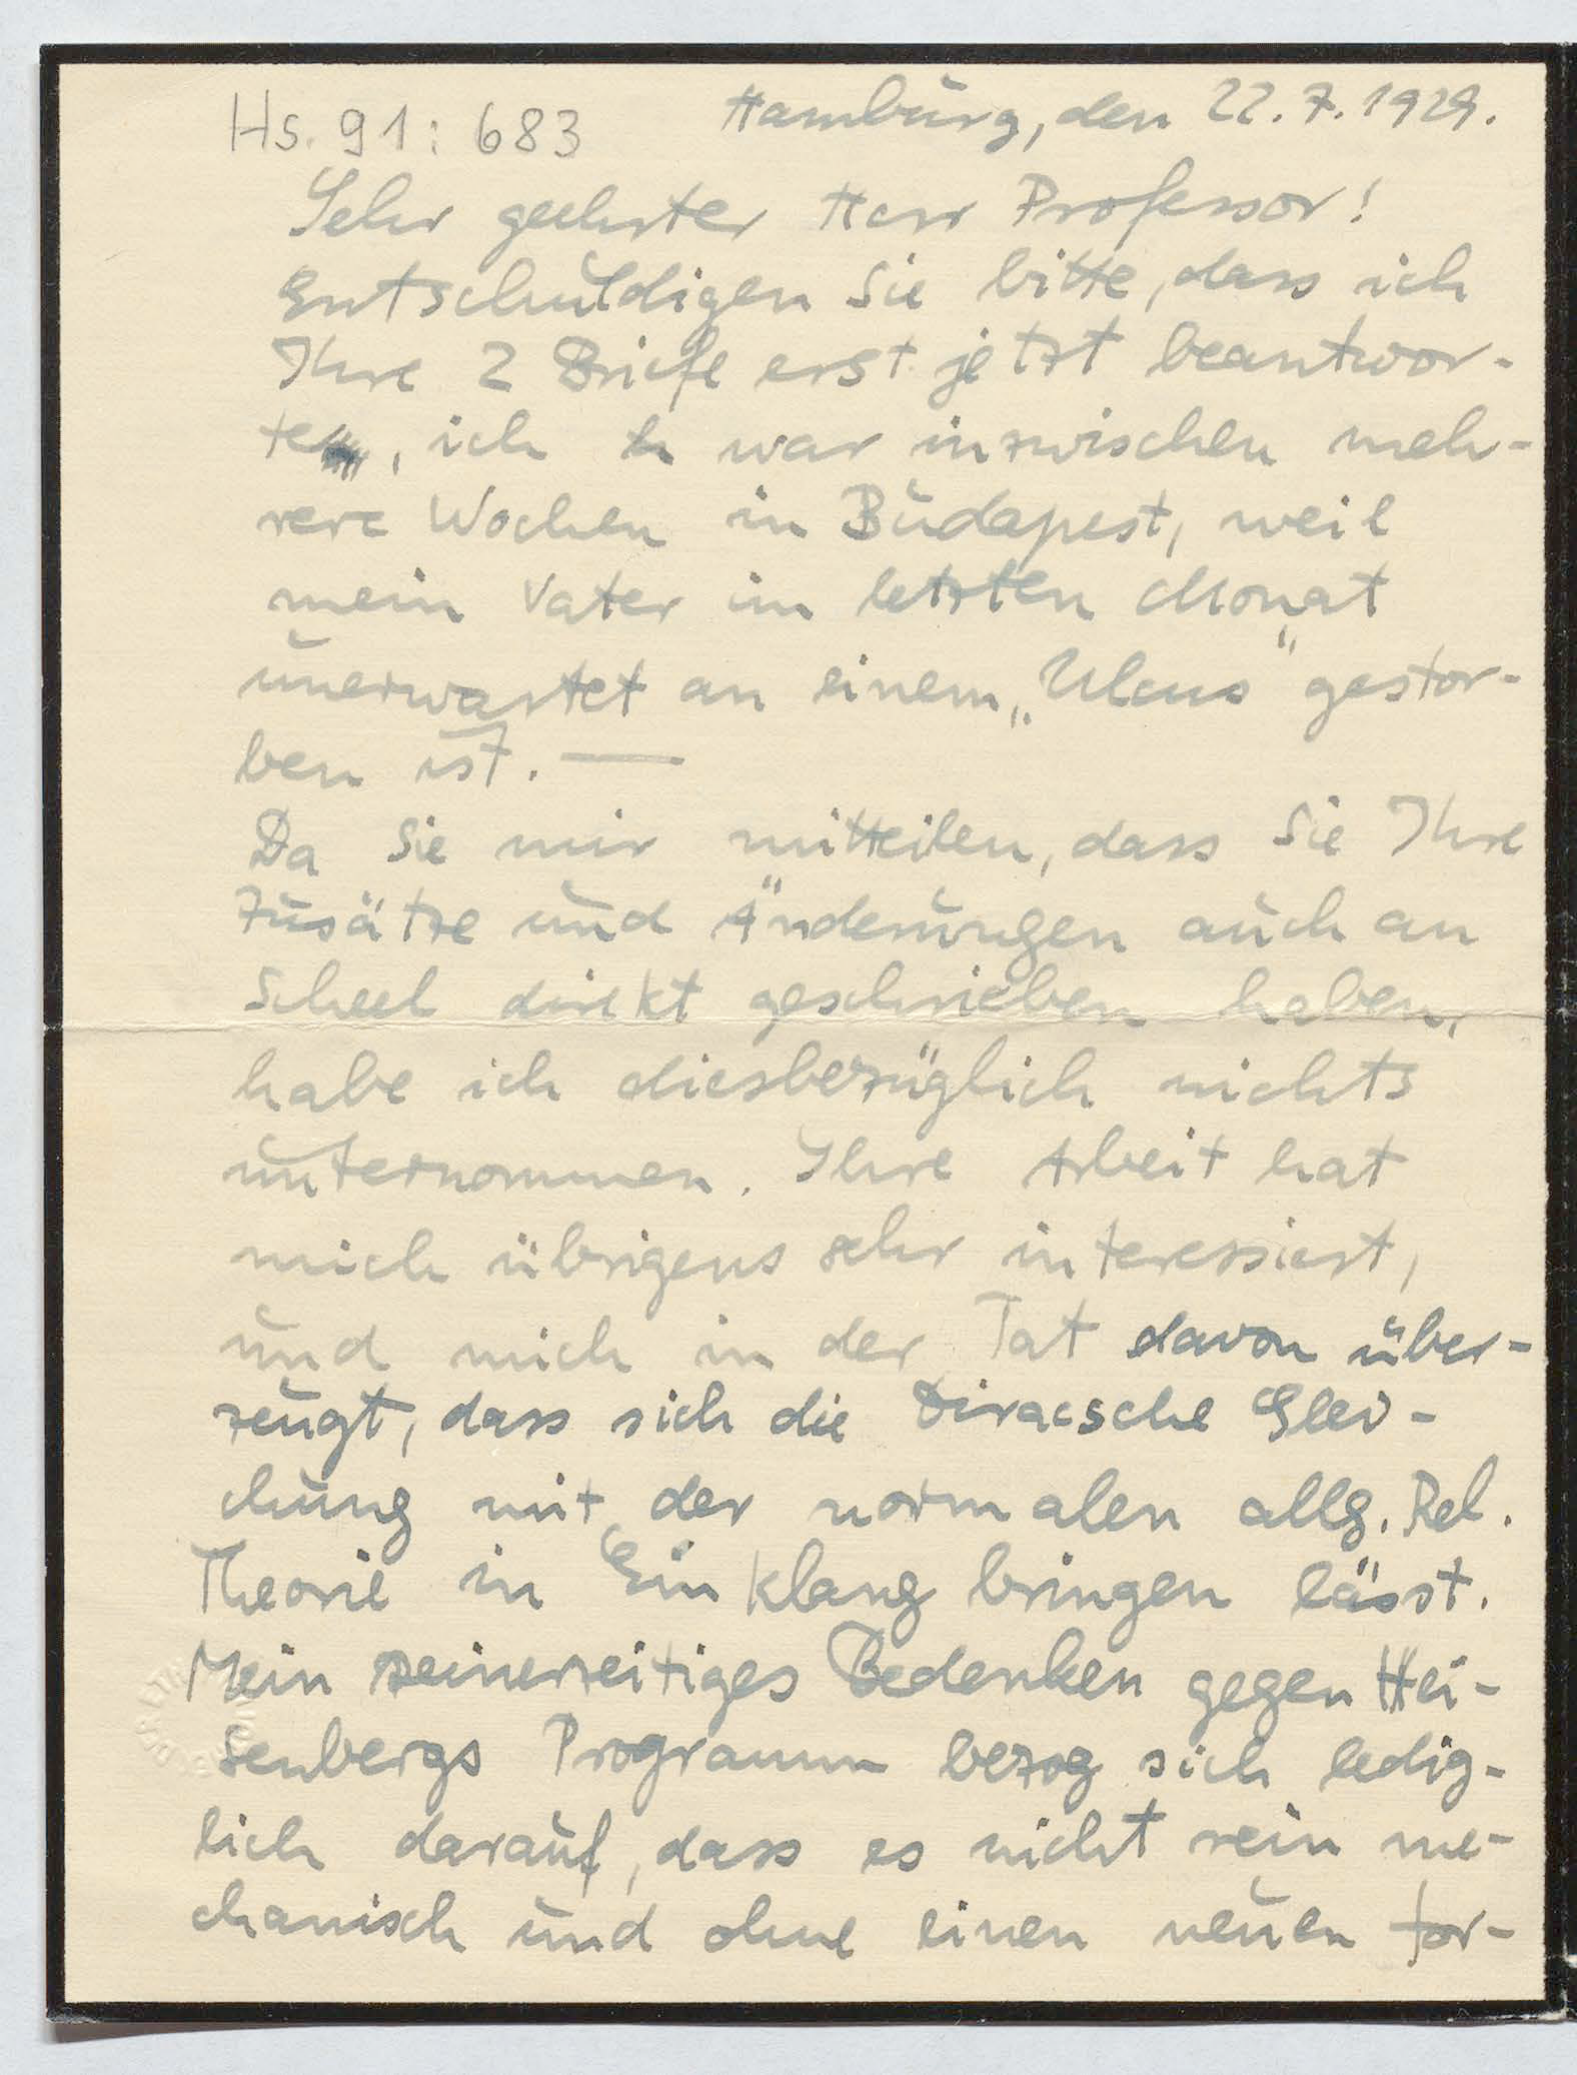 Hs. 91: 683
Hamburg, den 22. 7. 1929.
Sehr geehrter Herr Professor!
Entschuldigen Sie bitte, dass ich
Ihre 2 Briefe erst jetzt beantwor-
te, ich war inzwischen meh-
rere Wochen in Budapest, weil
mein Vater im letzten Monat
unerwartet an einem „Ulcus“ gestor-
ben ist. —
Da Sie mir mitteilen, dass Sie Ihre
Zusätze und Änderungen auch an
Scheel direkt geschrieben haben,
habe ich diesbezüglich nichts
unternommen. Ihre Arbeit hat
mich übrigens sehr interessiert,
und mich in der Tat davon über-
zeugt, dass sich die Diracsche Glei-
chung mit der normalen allg. Rel.
Theorie in Einklang bringen lässt.
Mein seinerzeitiges Bedenken gegen Hei-
senbergs Programm bezog sich ledig-
lich darauf, dass es nicht rein me-
chanisch und ohne einen neuen for-